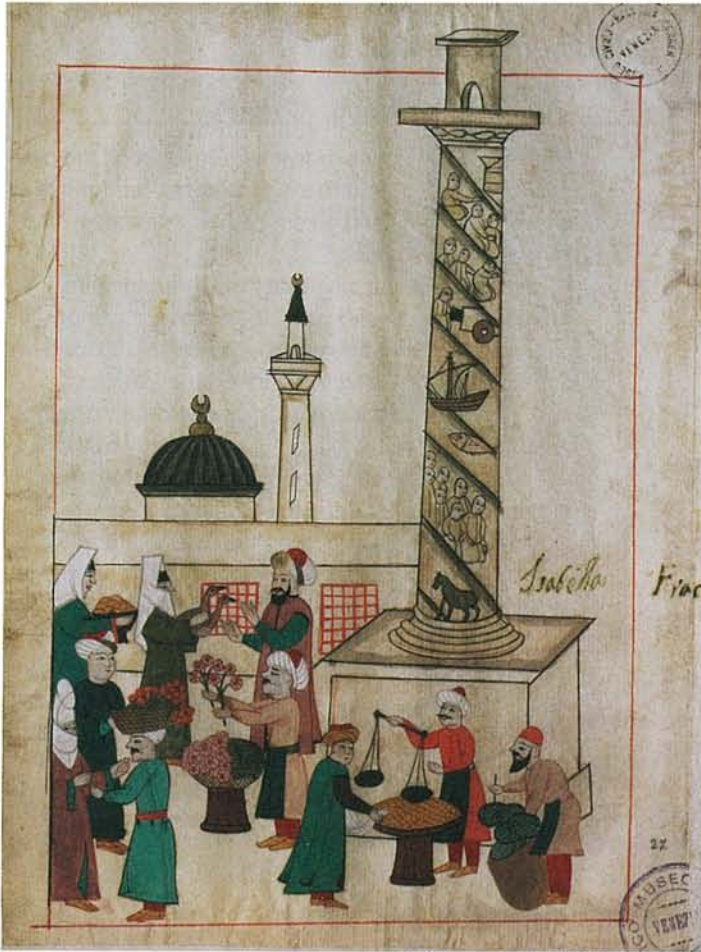 VENEZIA
Isabella Frac
27
MUSEO
VENEZ